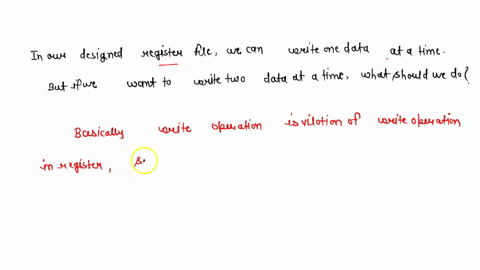 In our designed register file, we can write one data at a time.
But if we want to write two data at a time, what should we do?
Basically write operation is vilotion of write operation
in register, s